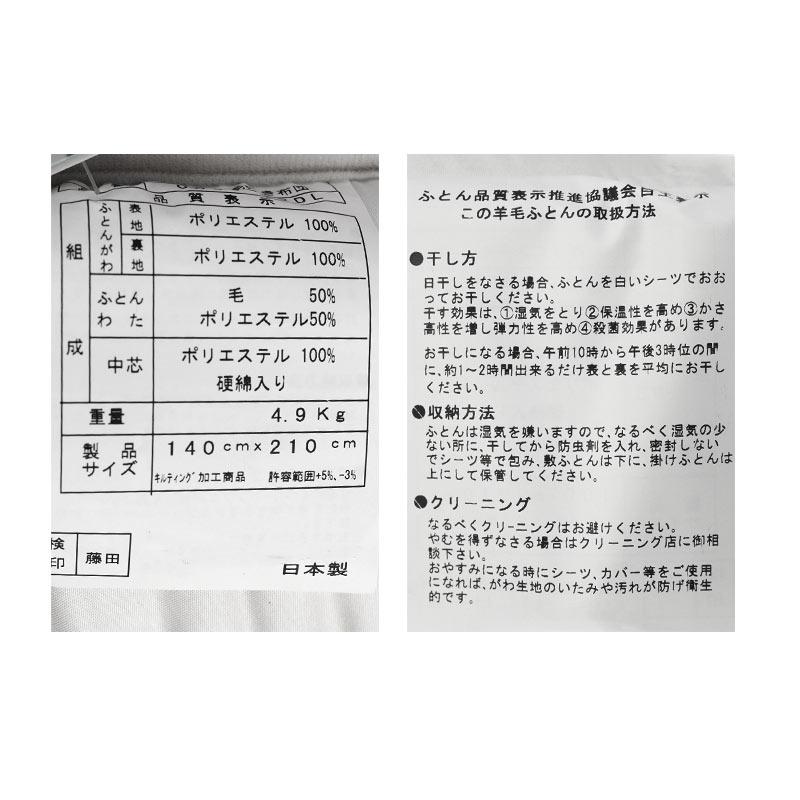 品質表示 DL
組成
ふとんがわ
表地
ポリエステル 100%
裏地
ポリエステル 100%
ふとん
わた
毛 50%
ポリエステル50%
中芯
ポリエステル 100%
硬綿入り
重量
4.9Kg
製品
サイズ
140cm×210cm
キルティング加工商品 許容範囲+5%、-3%
検印
藤田
日本製
ふとん品質表示推進協議会自主
この羊毛ふとんの取扱方法
●干し方
日干しをなさる場合、ふとんを白いシーツでおお
ってお干しください。
干す効果は、①湿気をとり②保温性を高め③かさ
高性を増し弾力性を高め④殺菌効果があります。
お干しになる場合、午前10時から午後3時位の間
に、約1〜2時間出来るだけ表と裏を平均にお干し
ください。
●収納方法
ふとんは湿気を嫌いますので、なるべく湿気の少
ない所に、干してから防虫剤を入れ、密封しない
でシーツ等で包み、敷ふとんは下に、掛けふとんは
上にして保管してください。
●クリーニング
なるべくクリーニングはお避けください。
やむを得ずなさる場合はクリーニング店に御相
談下さい。
おやすみになる時にシーツ、カバー等をご使用
になれば、がわ生地のいたみや汚れが防げ衛生
的です。